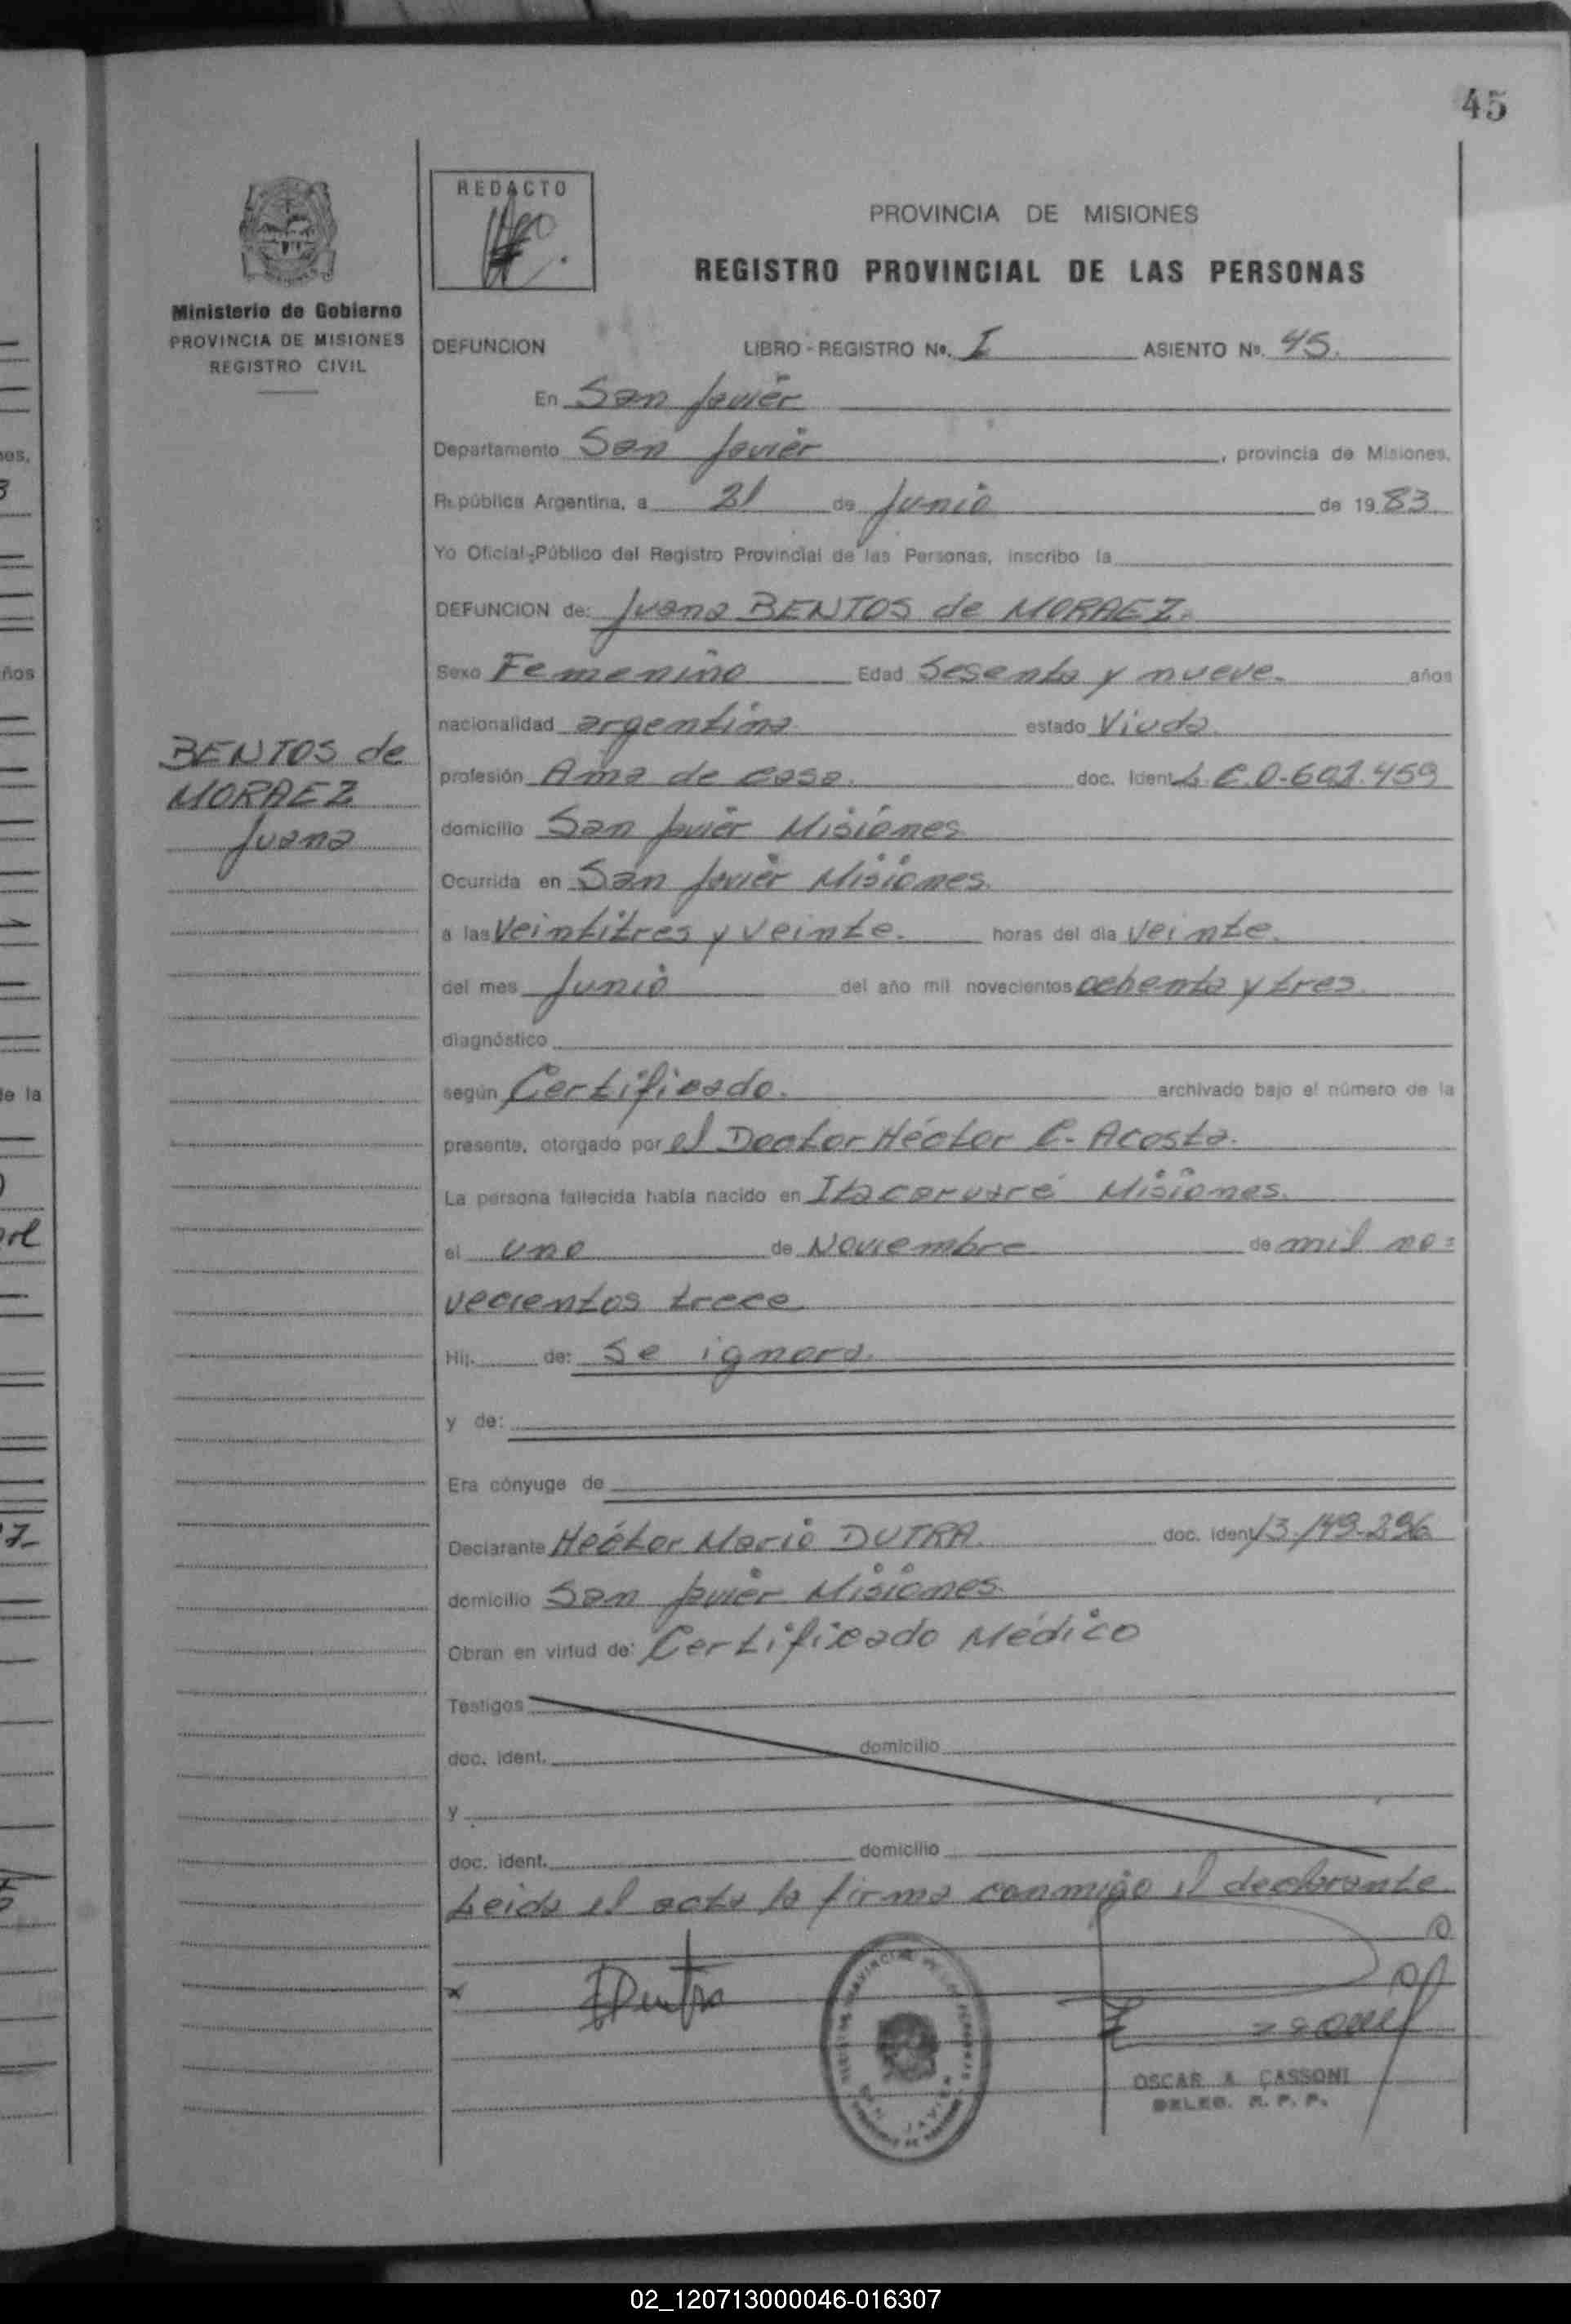 45
REDACTO
PROVINCIA DE MISIONES
REGISTRO PROVINCIAL DE LAS PERSONAS
Ministerio de Gobierno
PROVINCIA DE MISIONES
REGISTRO CIVIL
DEFUNCION LIBRO - REGISTRO Nº. I ASIENTO Nº. 45.
En San Javier
Departamento San Javier, provincia de Misiones.
República Argentina, a 21 de Junio de 1983
Yo Oficial Público del Registro Provincial de las Personas, inscribo la
DEFUNCION de: Juana BENTOS de MORAEZ.
Sexo Femenino Edad Sesenta y nueve. años
nacionalidad argentina estado Viuda.
BENTOS de
MORAEZ
Juana
profesión Ama de casa. doc. Ident L.C.0-601.459
domicilio San Javier Misiones
Ocurrida en San Javier Misiones.
a las Veintitres y veinte. horas del día veinte.
del mes Junio del año mil novecientos ochenta y tres.
diagnóstico
según Certificado. archivado bajo el número de la
presente, otorgado por el Doctor Héctor C. Acosta.
La persona fallecida había nacido en Itacaruaré Misiones.
el uno de Noviembre de mil no=
vecientos trece
Hij. de: Se ignora.
y de:
Era cónyuge de
Declarante Héctor Mario DUTRA. doc. ident 13.149.296
domicilio San Javier Misiones.
Obran en virtud de: Certificado Médico
Testigos
doc. ident. domicilio
y
doc. ident. domicilio
Leida el acta la firma conmigo el declarante
HDutra
OSCAR A. CASSONI
DELEG. R. P. P.
02_120713000046-016307